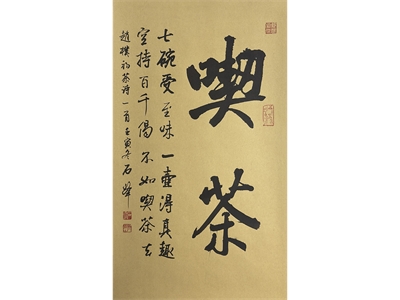 喫茶
七碗受至味一壺得真趣
空持百千偈不如喫茶去
趙樸初茶詩一首壬寅冬石峰